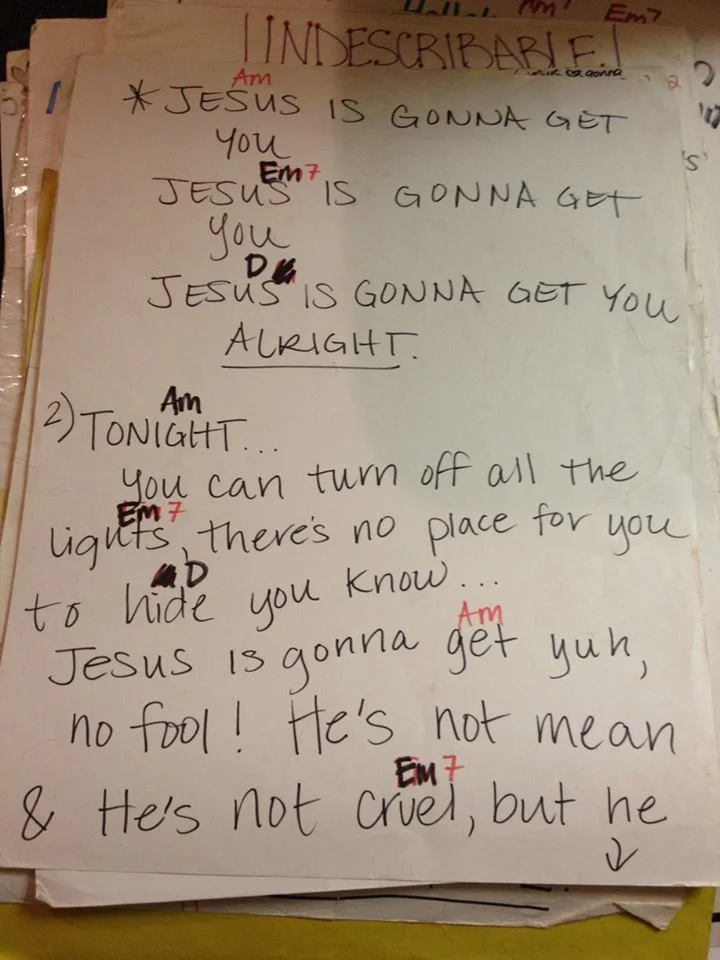 Am7 Em7
INDESCRIBABLE!
Am
* JESUS IS GONNA GET
YOU
Em7
JESUS IS GONNA GET
YOU
D
JESUS IS GONNA GET YOU
ALRIGHT.
Am
2) TONIGHT...
You can turn off all the
Em7
lights, there's no place for you
D
to hide you know...
Am
Jesus is gonna get yuh,
no fool! He's not mean
Em7
& He's not cruel, but he
↓